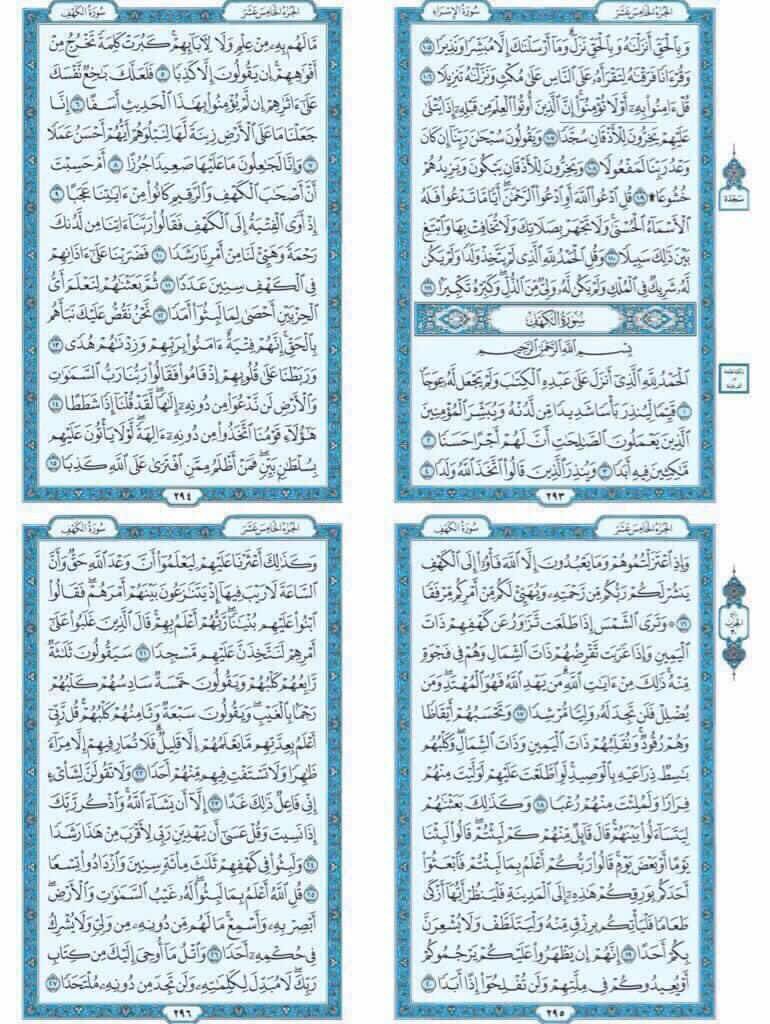 سُورَةُ الإِسْرَاءِ
الجُزْءُ الخَامِسَ عَشَرَ
وَبِالْحَقِّ أَنزَلْنَاهُ وَبِالْحَقِّ نَزَلَ وَمَا أَرْسَلْنَاكَ إِلَّا مُبَشِّرًا وَنَذِيرًا ١٠٥
وَقُرْءَانًا فَرَقْنَاهُ لِتَقْرَأَهُ عَلَى النَّاسِ عَلَى مُكْثٍ وَنَزَّلْنَاهُ تَنزِيلًا ١٠٦
قُلْ ءَامِنُوا بِهِ أَوْ لَا تُؤْمِنُوا إِنَّ الَّذِينَ أُوتُوا الْعِلْمَ مِن قَبْلِهِ إِذَا يُتْلَى
عَلَيْهِمْ يَخِرُّونَ لِلْأَذْقَانِ سُجَّدًا ١٠٧ وَيَقُولُونَ سُبْحَانَ رَبِّنَا إِن كَانَ
وَعْدُ رَبِّنَا لَمَفْعُولًا ١٠٨ وَيَخِرُّونَ لِلْأَذْقَانِ يَبْكُونَ وَيَزِيدُهُمْ
خُشُوعًا ۩ ١٠٩ قُلِ ادْعُوا اللَّهَ أَوِ ادْعُوا الرَّحْمَٰنَ أَيًّا مَّا تَدْعُوا فَلَهُ
الْأَسْمَاءُ الْحُسْنَى وَلَا تَجْهَرْ بِصَلَاتِكَ وَلَا تُخَافِتْ بِهَا وَابْتَغِ
بَيْنَ ذَٰلِكَ سَبِيلًا ١١٠ وَقُلِ الْحَمْدُ لِلَّهِ الَّذِي لَمْ يَتَّخِذْ وَلَدًا وَلَمْ يَكُن
لَّهُ شَرِيكٌ فِي الْمُلْكِ وَلَمْ يَكُن لَّهُ وَلِيٌّ مِّنَ الذُّلِّ وَكَبِّرْهُ تَكْبِيرًا ١١١
سُورَةُ الكَهْفِ
بِسْمِ اللَّهِ الرَّحْمَٰنِ الرَّحِيمِ
الْحَمْدُ لِلَّهِ الَّذِي أَنزَلَ عَلَى عَبْدِهِ الْكِتَابَ وَلَمْ يَجْعَل لَّهُ عِوَجًا
١ قَيِّمًا لِّيُنذِرَ بَأْسًا شَدِيدًا مِّن لَّدُنْهُ وَيُبَشِّرَ الْمُؤْمِنِينَ
الَّذِينَ يَعْمَلُونَ الصَّالِحَاتِ أَنَّ لَهُمْ أَجْرًا حَسَنًا ٢
مَّاكِثِينَ فِيهِ أَبَدًا ٣ وَيُنذِرَ الَّذِينَ قَالُوا اتَّخَذَ اللَّهُ وَلَدًا ٤
٢٩٣
سَجْدَة
سُورَةُ الكَهْفِ
الجُزْءُ الخَامِسَ عَشَرَ
مَّا لَهُم بِهِ مِنْ عِلْمٍ وَلَا لِآبَائِهِمْ كَبُرَتْ كَلِمَةً تَخْرُجُ مِنْ
أَفْوَاهِهِمْ إِن يَقُولُونَ إِلَّا كَذِبًا ٥ فَلَعَلَّكَ بَاخِعٌ نَّفْسَكَ
عَلَى ءَاثَارِهِمْ إِن لَّمْ يُؤْمِنُوا بِهَٰذَا الْحَدِيثِ أَسَفًا ٦ إِنَّا
جَعَلْنَا مَا عَلَى الْأَرْضِ زِينَةً لَّهَا لِنَبْلُوَهُمْ أَيُّهُمْ أَحْسَنُ عَمَلًا
٧ وَإِنَّا لَجَاعِلُونَ مَا عَلَيْهَا صَعِيدًا جُرُزًا ٨ أَمْ حَسِبْتَ
أَنَّ أَصْحَابَ الْكَهْفِ وَالرَّقِيمِ كَانُوا مِنْ ءَايَاتِنَا عَجَبًا ٩
إِذْ أَوَى الْفِتْيَةُ إِلَى الْكَهْفِ فَقَالُوا رَبَّنَا ءَاتِنَا مِن لَّدُنكَ
رَحْمَةً وَهَيِّئْ لَنَا مِنْ أَمْرِنَا رَشَدًا ١٠ فَضَرَبْنَا عَلَى ءَاذَانِهِمْ
فِي الْكَهْفِ سِنِينَ عَدَدًا ١١ ثُمَّ بَعَثْنَاهُمْ لِنَعْلَمَ أَيُّ
الْحِزْبَيْنِ أَحْصَى لِمَا لَبِثُوا أَمَدًا ١٢ نَّحْنُ نَقُصُّ عَلَيْكَ نَبَأَهُم
بِالْحَقِّ إِنَّهُمْ فِتْيَةٌ ءَامَنُوا بِرَبِّهِمْ وَزِدْنَاهُمْ هُدًى ١٣
وَرَبَطْنَا عَلَى قُلُوبِهِمْ إِذْ قَامُوا فَقَالُوا رَبُّنَا رَبُّ السَّمَاوَاتِ
وَالْأَرْضِ لَن نَّدْعُوَ مِن دُونِهِ إِلَٰهًا لَّقَدْ قُلْنَا إِذًا شَطَطًا ١٤
هَٰؤُلَاءِ قَوْمُنَا اتَّخَذُوا مِن دُونِهِ ءَالِهَةً لَّوْلَا يَأْتُونَ عَلَيْهِم
بِسُلْطَانٍ بَيِّنٍ فَمَنْ أَظْلَمُ مِمَّنِ افْتَرَى عَلَى اللَّهِ كَذِبًا ١٥
٢٩٤
سُورَةُ الكَهْفِ
الجُزْءُ الخَامِسَ عَشَرَ
وَإِذِ اعْتَزَلْتُمُوهُمْ وَمَا يَعْبُدُونَ إِلَّا اللَّهَ فَأْوُوا إِلَى الْكَهْفِ
يَنشُرْ لَكُمْ رَبُّكُم مِّن رَّحْمَتِهِ وَيُهَيِّئْ لَكُم مِّنْ أَمْرِكُم مِّرْفَقًا
١٦ ۞ وَتَرَى الشَّمْسَ إِذَا طَلَعَت تَّزَاوَرُ عَن كَهْفِهِمْ ذَاتَ
الْيَمِينِ وَإِذَا غَرَبَت تَّقْرِضُهُمْ ذَاتَ الشِّمَالِ وَهُمْ فِي فَجْوَةٍ
مِّنْهُ ذَٰلِكَ مِنْ ءَايَاتِ اللَّهِ مَن يَهْدِ اللَّهُ فَهُوَ الْمُهْتَدِ وَمَن
يُضْلِلْ فَلَن تَجِدَ لَهُ وَلِيًّا مُّرْشِدًا ١٧ وَتَحْسَبُهُمْ أَيْقَاظًا
وَهُمْ رُقُودٌ وَنُقَلِّبُهُمْ ذَاتَ الْيَمِينِ وَذَاتَ الشِّمَالِ وَكَلْبُهُم
بَاسِطٌ ذِرَاعَيْهِ بِالْوَصِيدِ لَوِ اطَّلَعْتَ عَلَيْهِمْ لَوَلَّيْتَ مِنْهُمْ
فِرَارًا وَلَمُلِئْتَ مِنْهُمْ رُعْبًا ١٨ وَكَذَٰلِكَ بَعَثْنَاهُمْ
لِيَتَسَاءَلُوا بَيْنَهُمْ قَالَ قَائِلٌ مِّنْهُمْ كَمْ لَبِثْتُمْ قَالُوا لَبِثْنَا
يَوْمًا أَوْ بَعْضَ يَوْمٍ قَالُوا رَبُّكُمْ أَعْلَمُ بِمَا لَبِثْتُمْ فَابْعَثُوا
أَحَدَكُم بِوَرِقِكُمْ هَٰذِهِ إِلَى الْمَدِينَةِ فَلْيَنظُرْ أَيُّهَا أَزْكَى
طَعَامًا فَلْيَأْتِكُم بِرِزْقٍ مِّنْهُ وَلْيَتَلَطَّفْ وَلَا يُشْعِرَنَّ
بِكُمْ أَحَدًا ١٩ إِنَّهُمْ إِن يَظْهَرُوا عَلَيْكُمْ يَرْجُمُوكُمْ
أَوْ يُعِيدُوكُمْ فِي مِلَّتِهِمْ وَلَن تُفْلِحُوا إِذًا أَبَدًا ٢٠
٢٩٥
سُورَةُ الكَهْفِ
الجُزْءُ الخَامِسَ عَشَرَ
وَكَذَٰلِكَ أَعْثَرْنَا عَلَيْهِمْ لِيَعْلَمُوا أَنَّ وَعْدَ اللَّهِ حَقٌّ وَأَنَّ
السَّاعَةَ لَا رَيْبَ فِيهَا إِذْ يَتَنَازَعُونَ بَيْنَهُمْ أَمْرَهُمْ فَقَالُوا
ابْنُوا عَلَيْهِم بُنْيَانًا رَّبُّهُمْ أَعْلَمُ بِهِمْ قَالَ الَّذِينَ غَلَبُوا عَلَى
أَمْرِهِمْ لَنَتَّخِذَنَّ عَلَيْهِم مَّسْجِدًا ٢١ سَيَقُولُونَ ثَلَاثَةٌ
رَّابِعُهُمْ كَلْبُهُمْ وَيَقُولُونَ خَمْسَةٌ سَادِسُهُمْ كَلْبُهُمْ
رَجْمًا بِالْغَيْبِ وَيَقُولُونَ سَبْعَةٌ وَثَامِنُهُمْ كَلْبُهُمْ قُل رَّبِّي
أَعْلَمُ بِعِدَّتِهِم مَّا يَعْلَمُهُمْ إِلَّا قَلِيلٌ فَلَا تُمَارِ فِيهِمْ إِلَّا مِرَاءً
ظَاهِرًا وَلَا تَسْتَفْتِ فِيهِم مِّنْهُمْ أَحَدًا ٢٢ وَلَا تَقُولَنَّ لِشَيْءٍ
إِنِّي فَاعِلٌ ذَٰلِكَ غَدًا ٢٣ إِلَّا أَن يَشَاءَ اللَّهُ وَاذْكُر رَّبَّكَ
إِذَا نَسِيتَ وَقُلْ عَسَى أَن يَهْدِيَنِ رَبِّي لِأَقْرَبَ مِنْ هَٰذَا رَشَدًا
٢٤ وَلَبِثُوا فِي كَهْفِهِمْ ثَلَاثَ مِائَةٍ سِنِينَ وَازْدَادُوا تِسْعًا
٢٥ قُلِ اللَّهُ أَعْلَمُ بِمَا لَبِثُوا لَهُ غَيْبُ السَّمَاوَاتِ وَالْأَرْضِ
أَبْصِرْ بِهِ وَأَسْمِعْ مَا لَهُم مِّن دُونِهِ مِن وَلِيٍّ وَلَا يُشْرِكُ
فِي حُكْمِهِ أَحَدًا ٢٦ وَاتْلُ مَا أُوحِيَ إِلَيْكَ مِن كِتَابِ
رَبِّكَ لَا مُبَدِّلَ لِكَلِمَاتِهِ وَلَن تَجِدَ مِن دُونِهِ مُلْتَحَدًا ٢٧
٢٩٦